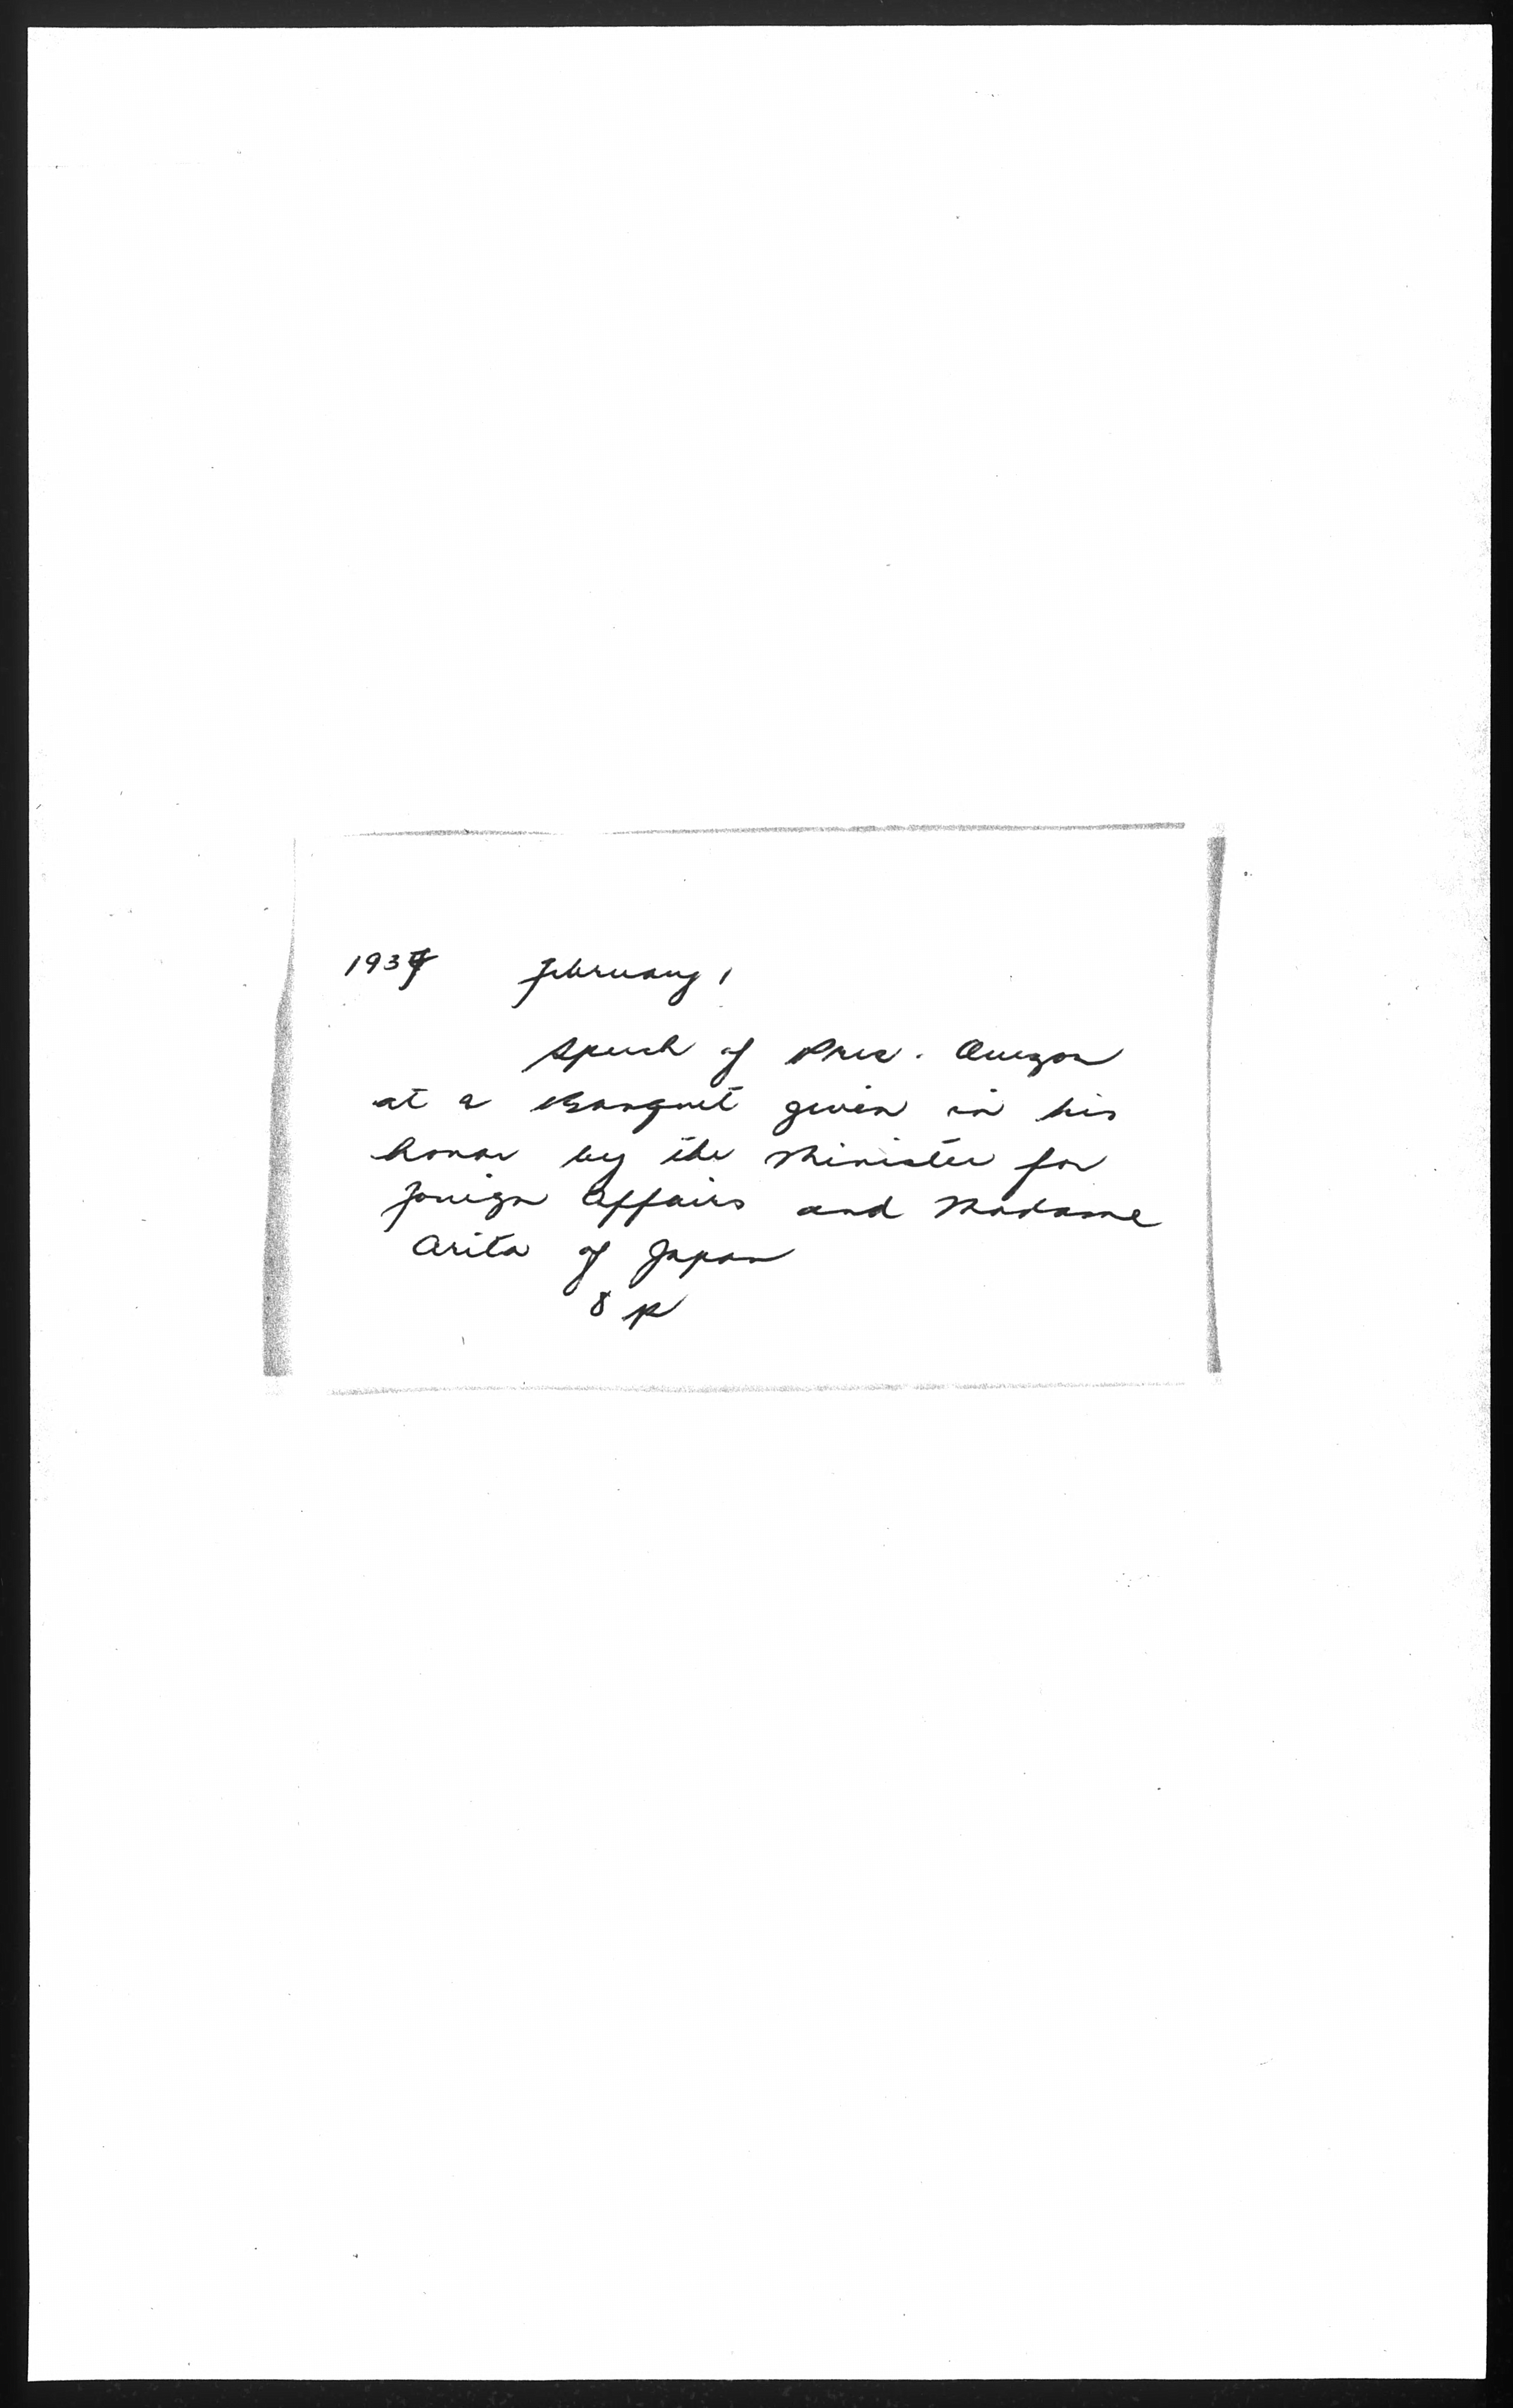 1937 February 1
Speech of Pres. Quezon
at a Banquet given in his
honor by the Minister for
Foreign Affairs and Madame
Arita of Japan
8 p